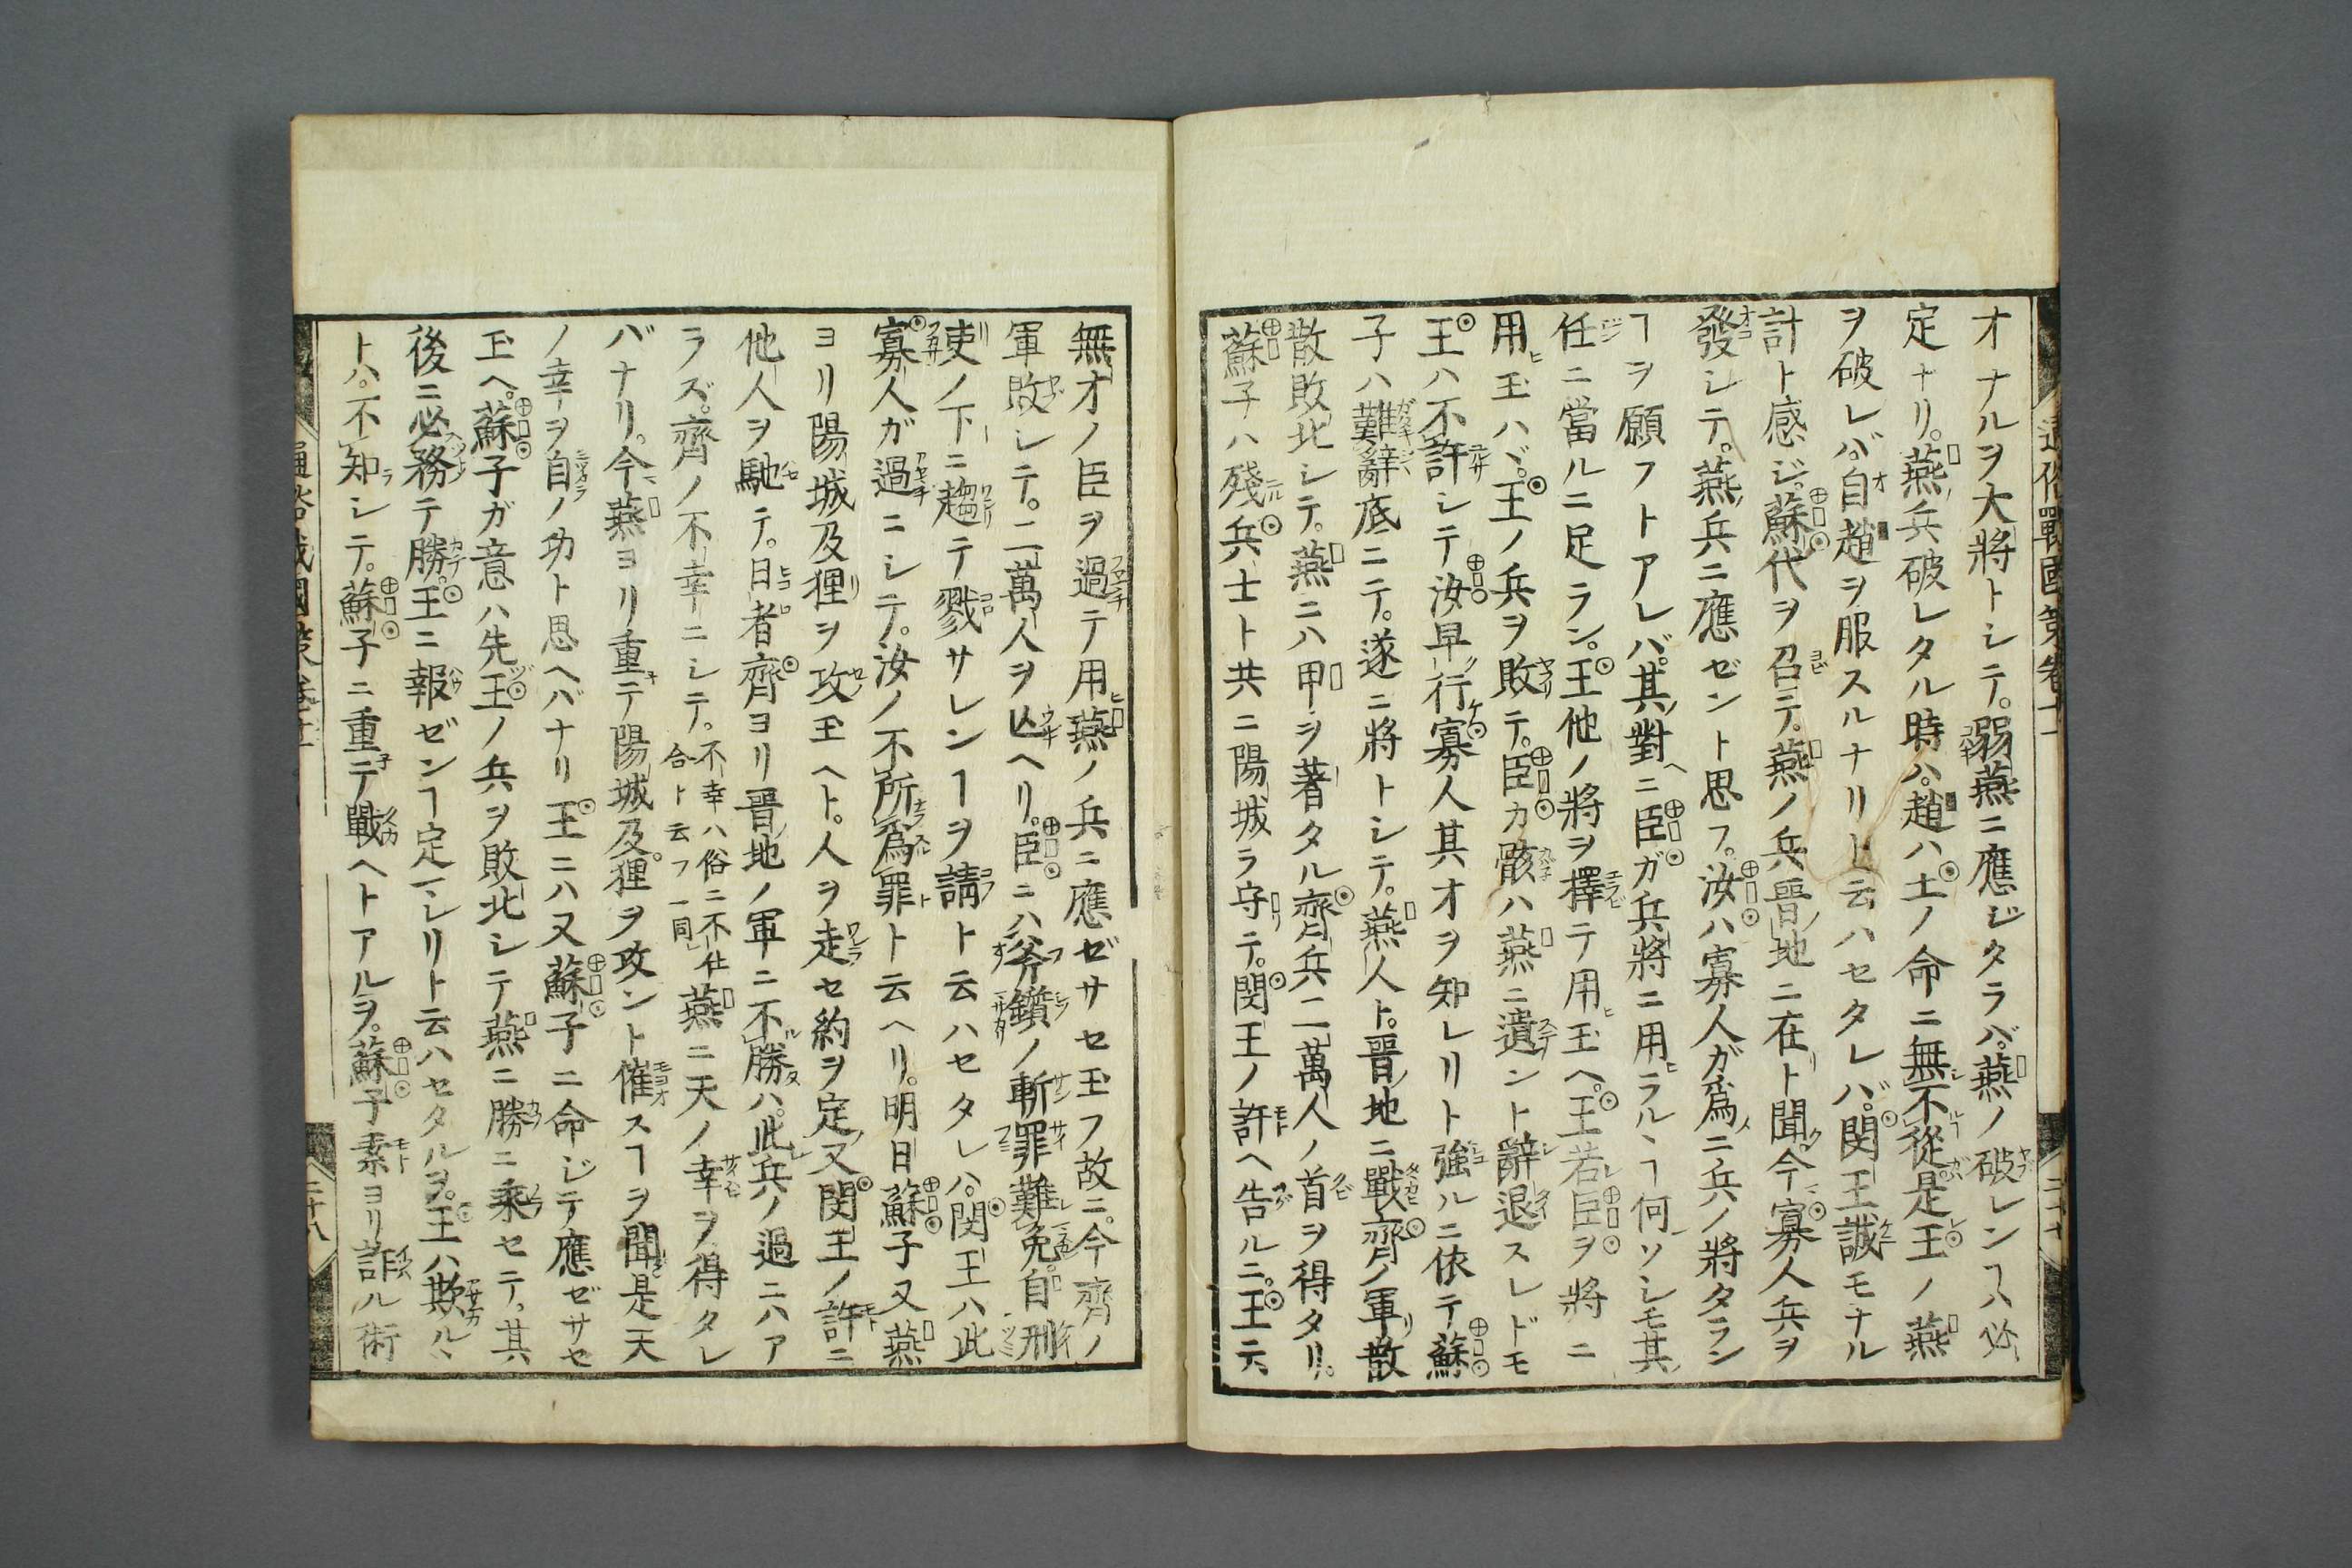 通俗戰國策卷十一
二十七
才ナルヲ大將トシテ。弱燕ニ應ジタラバ。燕ノ破レンヿハ必
定ナリ。燕兵破レタル時ハ。趙ハ士ノ命ニ無不從。是王ノ燕
ヲ破レバ。自趙ヲ服スルナリト云ハセタレバ。閔王誠モナル
計ト感ジ。蘇代ヲ召テ。燕ノ兵晋地ニ在ト聞。今寡人兵ヲ
發シテ。燕兵ニ應ゼント思フ。汝ハ寡人ガ爲ニ兵ノ將タラン
ヿヲ願フトアレバ。其對ニ臣ガ兵將ニ用ラルヽヿ何ソシモ其
任ニ當ルニ足ラン。王他ノ將ヲ擇テ用玉ヘ。王若臣ヲ將ニ
用玉ハヾ。王ノ兵ヲ敗テ。臣カ骸ハ燕ニ遺ント辭退スレドモ
王ハ不許シテ汝早行寡人其才ヲ知レリト強ルニ依テ蘇
子ハ難辭底ニテ。遂ニ將トシテ。燕人ト。晋地ニ戰齊ノ軍散
散敗北シテ。燕ニハ甲ヲ著タル齊兵二萬人ノ首ヲ得タリ。
蘇子ハ殘兵士ト共ニ陽城ラ守テ。閔王ノ許ヘ告ルニ。王六
無才ノ臣ヲ過テ用燕ノ兵ニ應ゼサセ玉フ故ニ。今齊ノ
軍敗シテ。二萬人ヲ亾ヘリ。臣ニハ斧鑕ノ斬罪難免。自刑
吏ノ下ニ趨テ戮サレンヿヲ請ト云ハセタレハ。閔王ハ此
寡人ガ過ニシテ。汝ノ不所爲罪ト云ヘリ。明日蘇子又燕
ヨリ陽城及狸ヲ攻玉ヘト。人ヲ走セ約ヲ定又閔王ノ許ニ
他人ヲ馳テ。日者齊ヨリ晋地ノ軍ニ不勝ハ。此兵ノ過ニハア
ラズ。齊ノ不幸ニシテ。不幸ハ俗ニ不仕合ト云フ一同シ燕ニ天ノ幸ヲ得タレ
バナリ。今燕ヨリ重テ陽城及。狸ヲ攻ント催スヿヲ聞是天
ノ幸ヲ自ノ功ト思ヘバナリ王ニハ又蘇子ニ命ジテ應ゼサセ
玉ヘ。蘇子ガ意ハ先王ノ兵ヲ敗北シテ燕ニ勝ニ乘セテ。其
後ニ必務テ勝。王ニ報ゼンヿ定シリト云ハセタルヲ。王ハ欺ルヽ
トハ。不知シテ。蘇子ニ重テ戰ヘトアルヲ。蘇子素ヨリ詐ル術
通俗戰國策卷十一
二十八